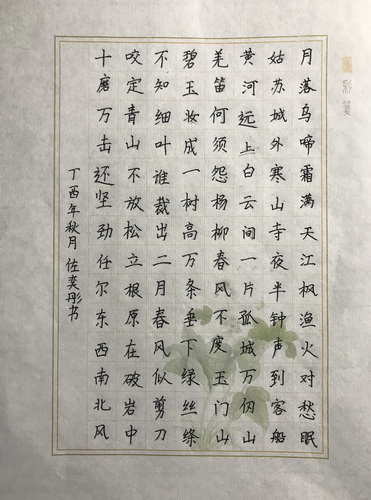 月落乌啼霜满天江枫渔火对愁眠
姑苏城外寒山寺夜半钟声到客船
黄河远上白云间一片孤城万仞山
羌笛何须怨杨柳春风不度玉门山
碧玉妆成一树高万条垂下绿丝绦
不知细叶谁裁出二月春风似剪刀
咬定青山不放松立根原在破岩中
十磨万击还坚劲任尔东西南北风
丁酉年秋月 佐奕彤书
彩笺